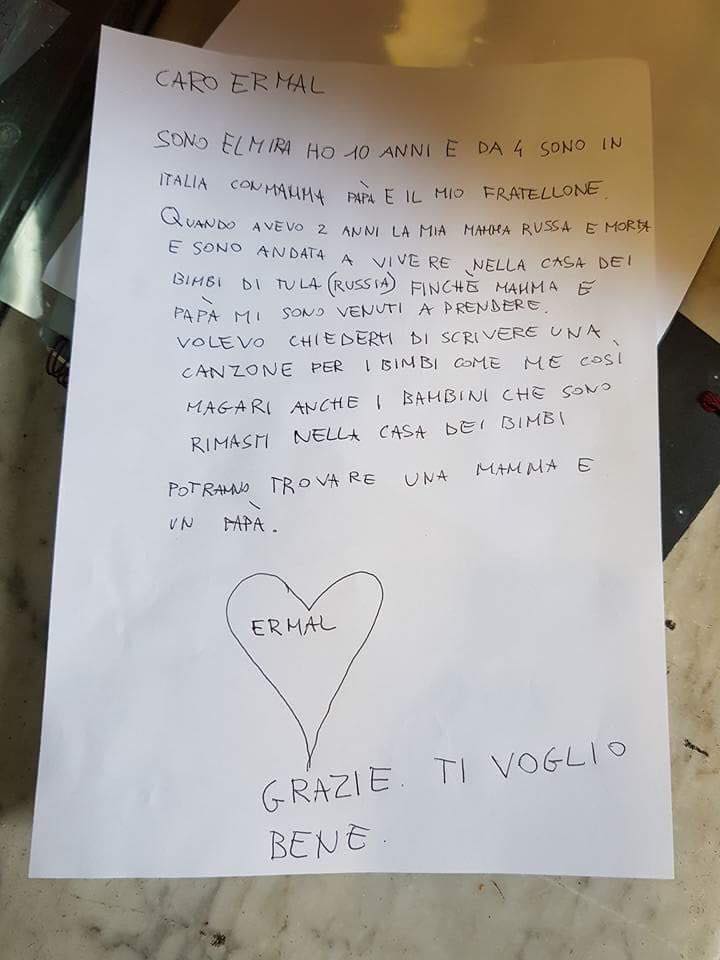 CARO ERMAL
SONO ELMIRA HO 10 ANNI E DA 4 SONO IN
ITALIA CON MAMMA PAPÀ E IL MIO FRATELLONE.
QUANDO AVEVO 2 ANNI LA MIA MAMMA RUSSA E MORTA
E SONO ANDATA A VIVERE NELLA CASA DEI
BIMBI DI TULA (RUSSIA) FINCHÈ MAMMA E
PAPÀ MI SONO VENUTI A PRENDERE.
VOLEVO CHIEDERTI DI SCRIVERE UNA
CANZONE PER I BIMBI COME ME COSÌ
MAGARI ANCHE I BAMBINI CHE SONO
RIMASTI NELLA CASA DEI BIMBI
POTRANNO TROVARE UNA MAMMA E
UN PAPÀ.
ERMAL
GRAZIE. TI VOGLIO
BENE.